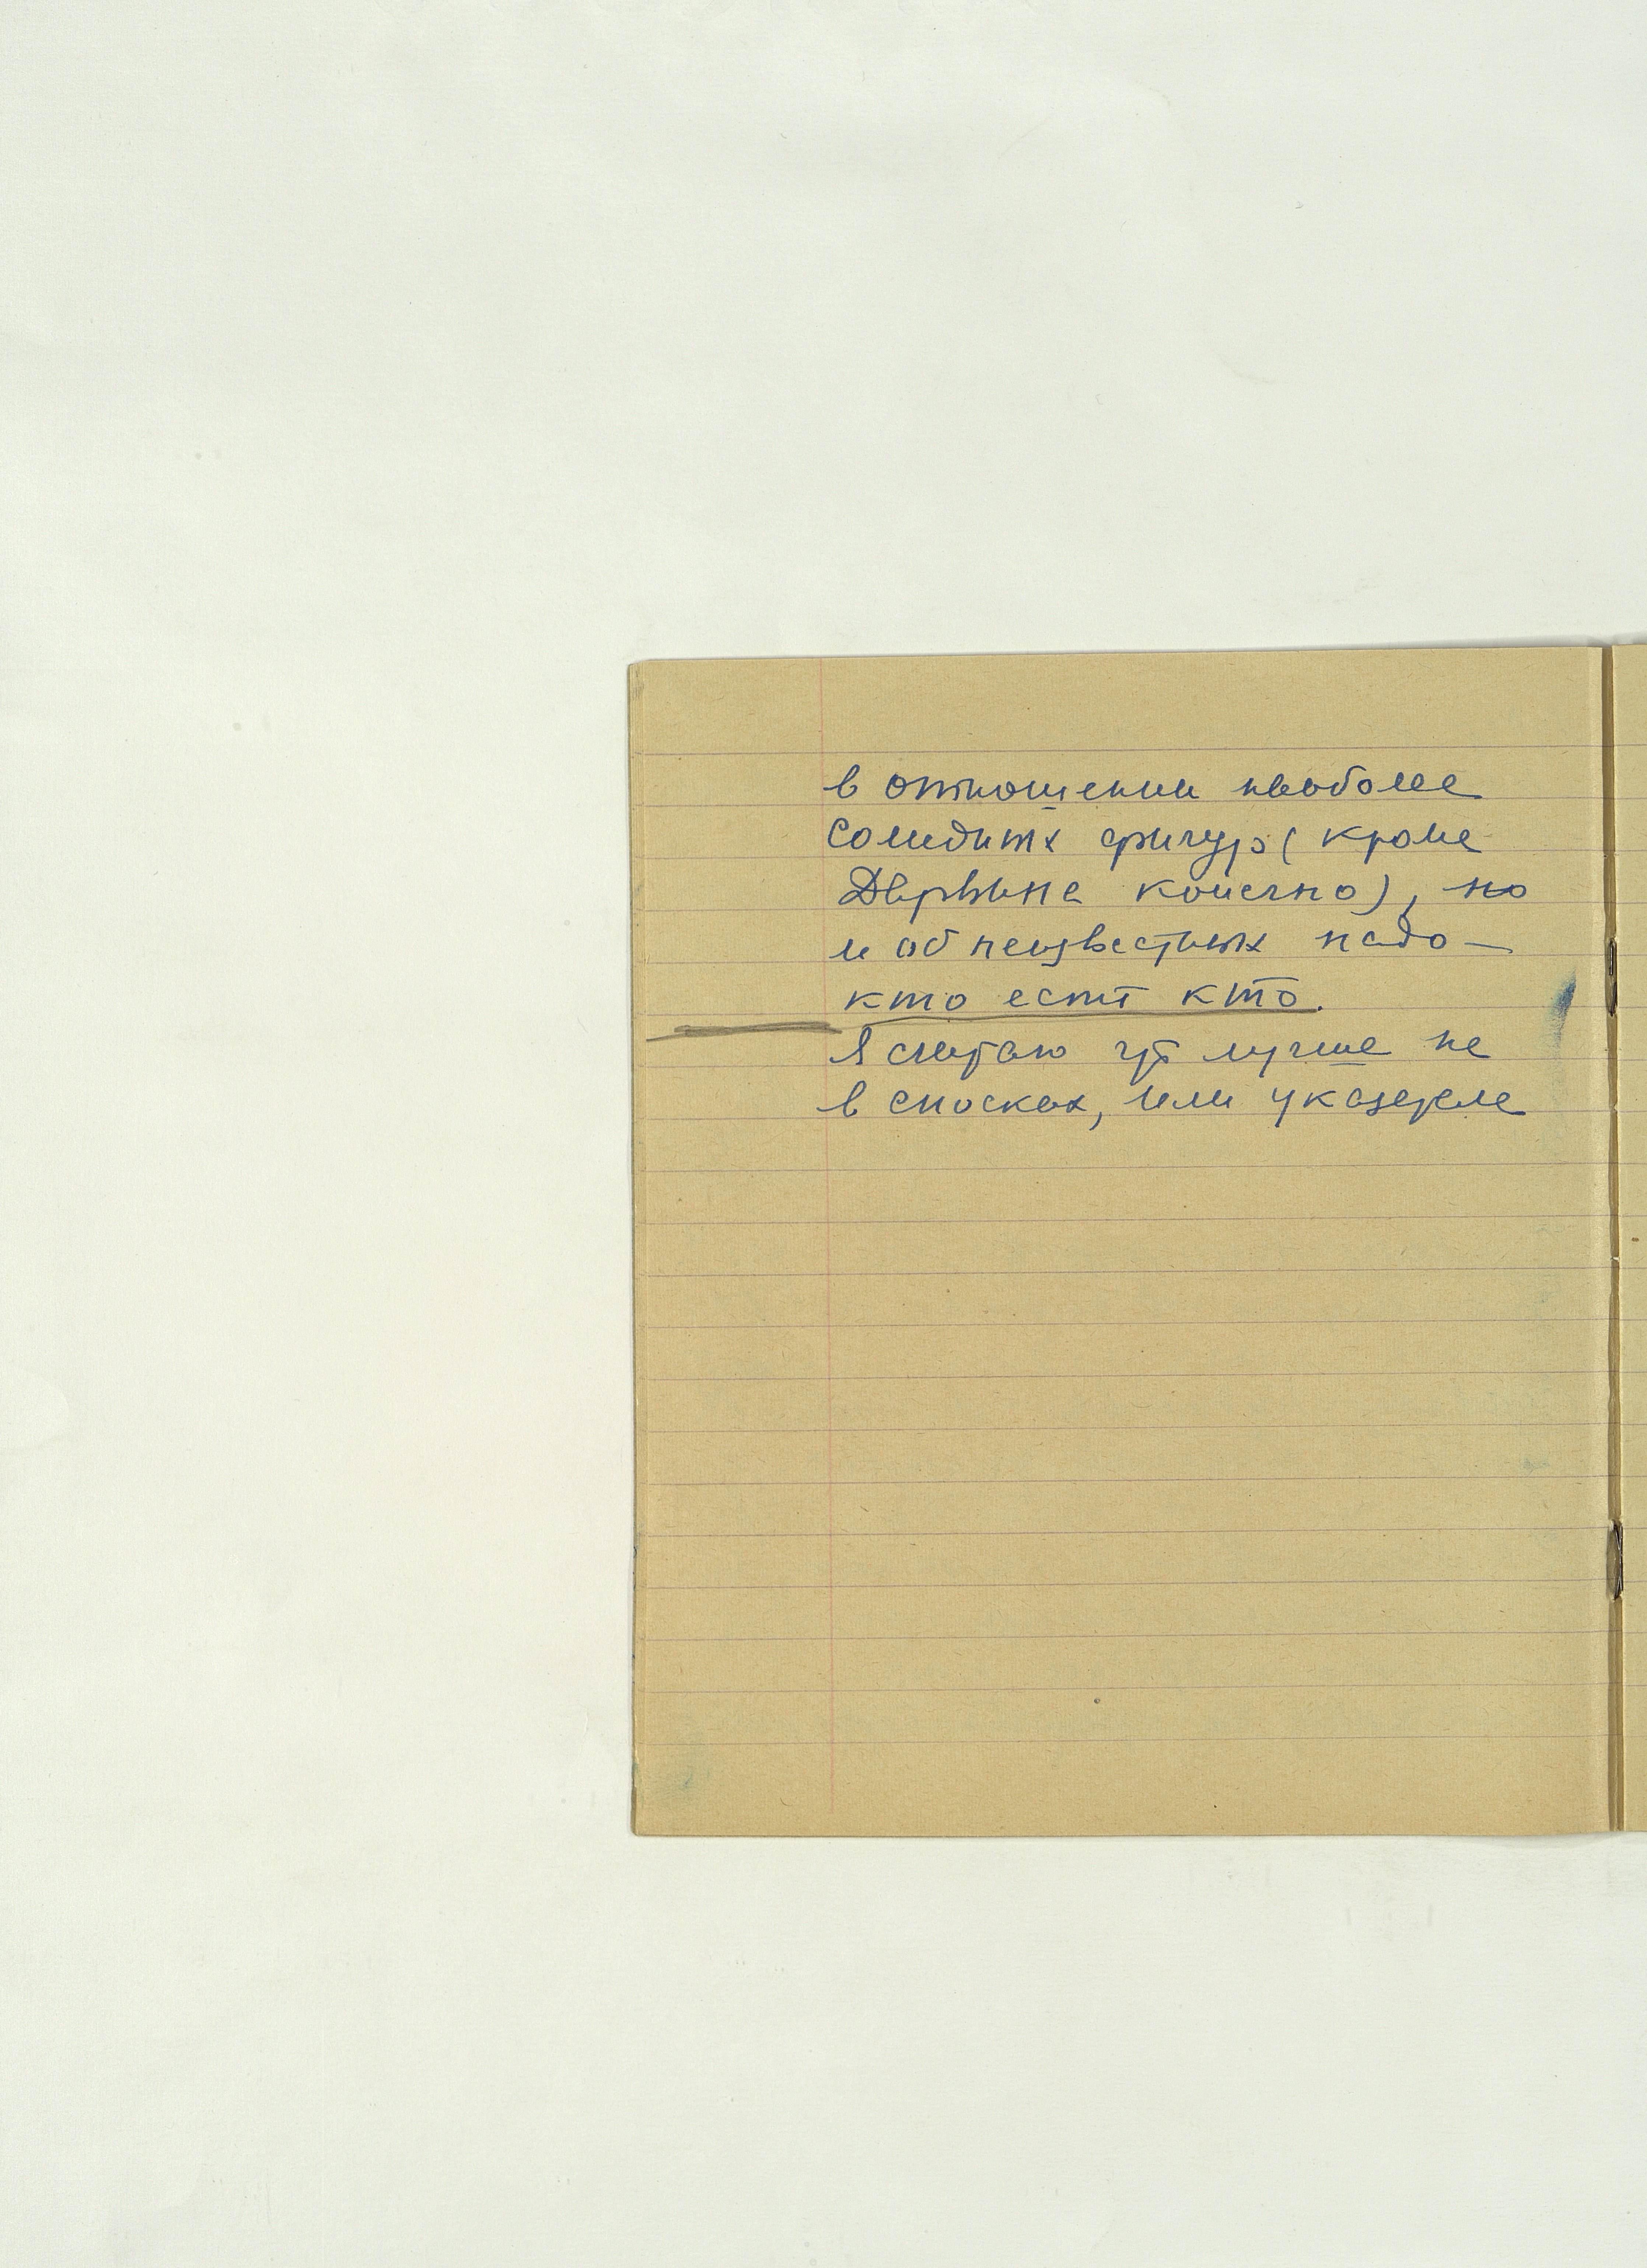 в отношении наиболее
солидных фигур (кроме
Дарвина конечно), но
и об неизвестных надо —
кто есть кто.
Я считаю что лучше не
в сносках, или указателе